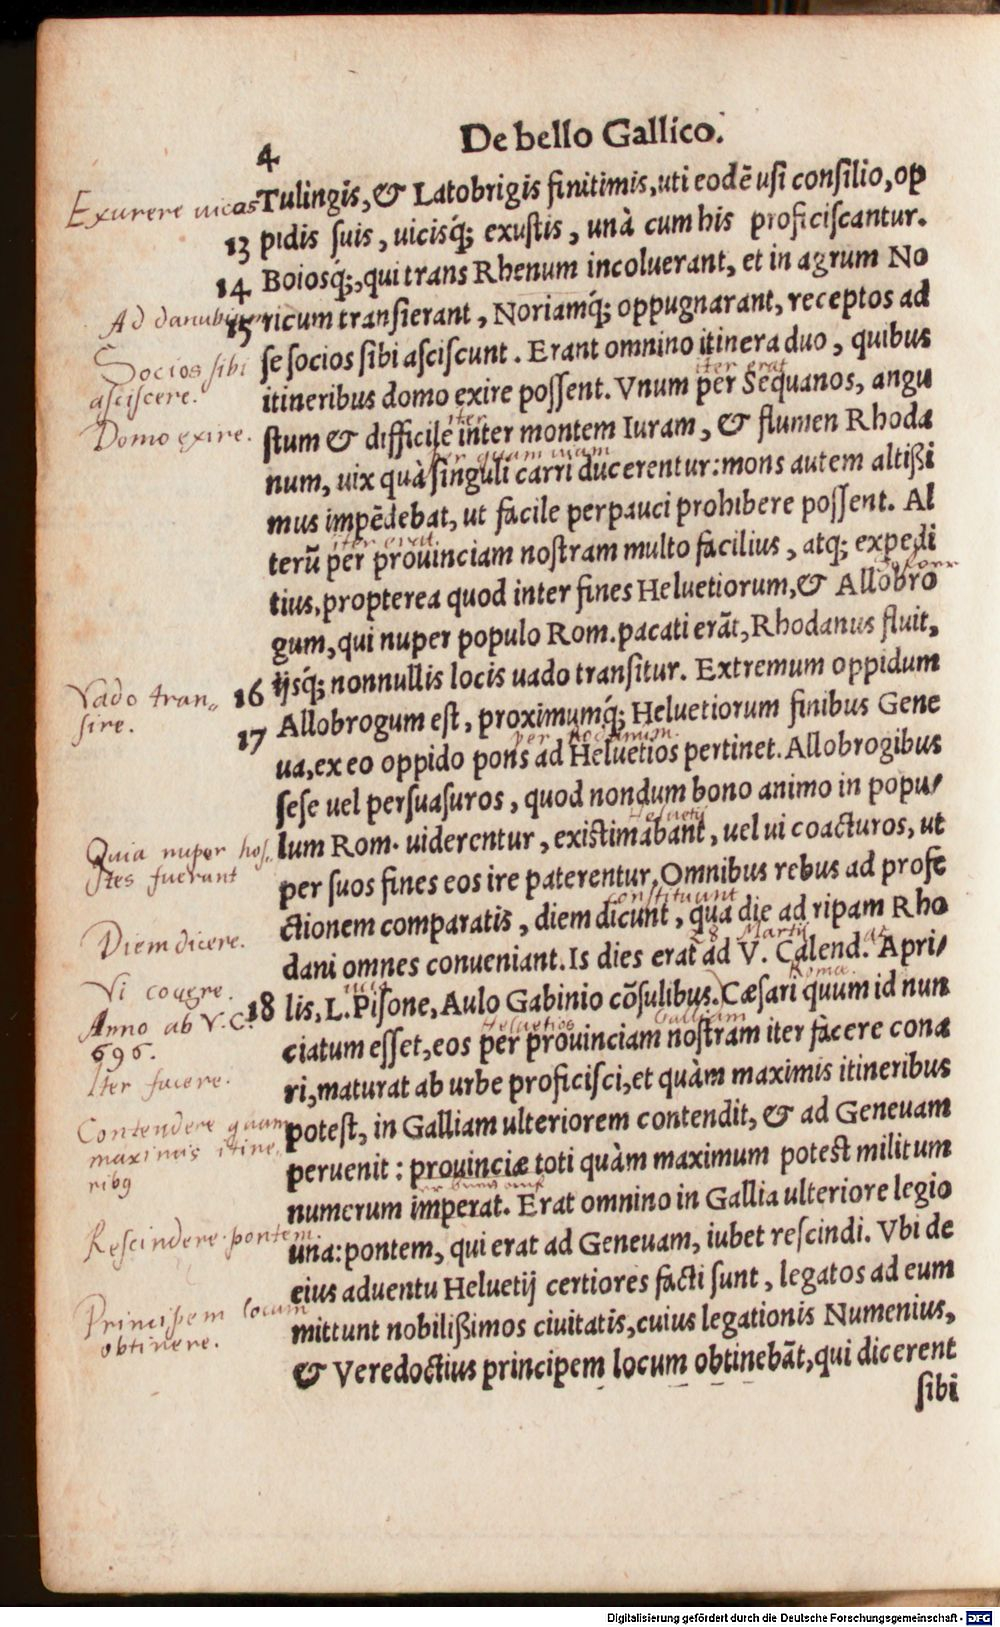 De bello Gallico.
4
Exurere uicos
Tulingis, & Latobrigis finitimis, uti eodē usi consilio, op
13 pidis suis, uicisq́; exustis, unà cum his proficiscantur.
14 Boiosq́;, qui trans Rhenum incoluerant, et in agrum No
Ad danubium
15 ricum transierant, Noriamq́; oppugnarant, receptos ad
Socios sibi
se socios sibi asciscunt. Erant omnino itinera duo, quibus
asciscere.
iter erat
itineribus domo exire possent. Vnum per Sequanos, angu
Domo exire.
iter
stum & difficile inter montem Iuram, & flumen Rhoda
per quam uiam
num, uix quà singuli carri ducerentur: mons autem altißi
mus impēdebat, ut facile perpauci prohibere possent. Al
iter erat.
terū per prouinciam nostram multo facilius, atq; expedi
tius, propterea quod inter fines Heluetiorum, & Allobro
gum, qui nuper populo Rom. pacati erāt, Rhodanus fluit,
Vado tran„
sire.
16 ijsq́; nonnullis locis uado transitur. Extremum oppidum
Allobrogum est, proximumq́; Heluetiorum finibus Gene
per Rodanum.
17 ua, ex eo oppido pons ad Heluetios pertinet. Allobrogibus
sese uel persuasuros, quod nondum bono animo in popu/
Heluetij
Quia nuper hos„
tes fuerant
lum Rom. uiderentur, existimabant, uel ui coacturos, ut
per suos fines eos ire paterentur. Omnibus rebus ad profe
constituunt
Diem dicere.
ctionem comparatis, diem dicunt, qua die ad ripam Rho
28 Martij
dani omnes conueniant. Is dies erat ad V. Calend. Apri/
Vi cogere.
Romæ.
18 lis, L. Pisone, Aulo Gabinio cōsulibus. Cæsari quum id nun
Anno ab V.C.
696.
Heluetios
Galliam
ciatum esset, eos per prouinciam nostram iter facere cona
Iter facere.
ri, maturat ab urbe proficisci, et quàm maximis itineribus
Contendere quam
maximis itine„
ribus
potest, in Galliam ulteriorem contendit, & ad Geneuam
peruenit: prouinciæ toti quàm maximum potest militum
numerum imperat. Erat omnino in Gallia ulteriore legio
Rescindere pontem.
una: pontem, qui erat ad Geneuam, iubet rescindi. Vbi de
eius aduentu Heluetij certiores facti sunt, legatos ad eum
Principem locum
obtinere.
mittunt nobilißimos ciuitatis, cuius legationis Numenius,
& Veredoctius principem locum obtinebāt, qui dicerent
sibi
Digitalisierung gefördert durch die Deutsche Forschungsgemeinschaft - DFG